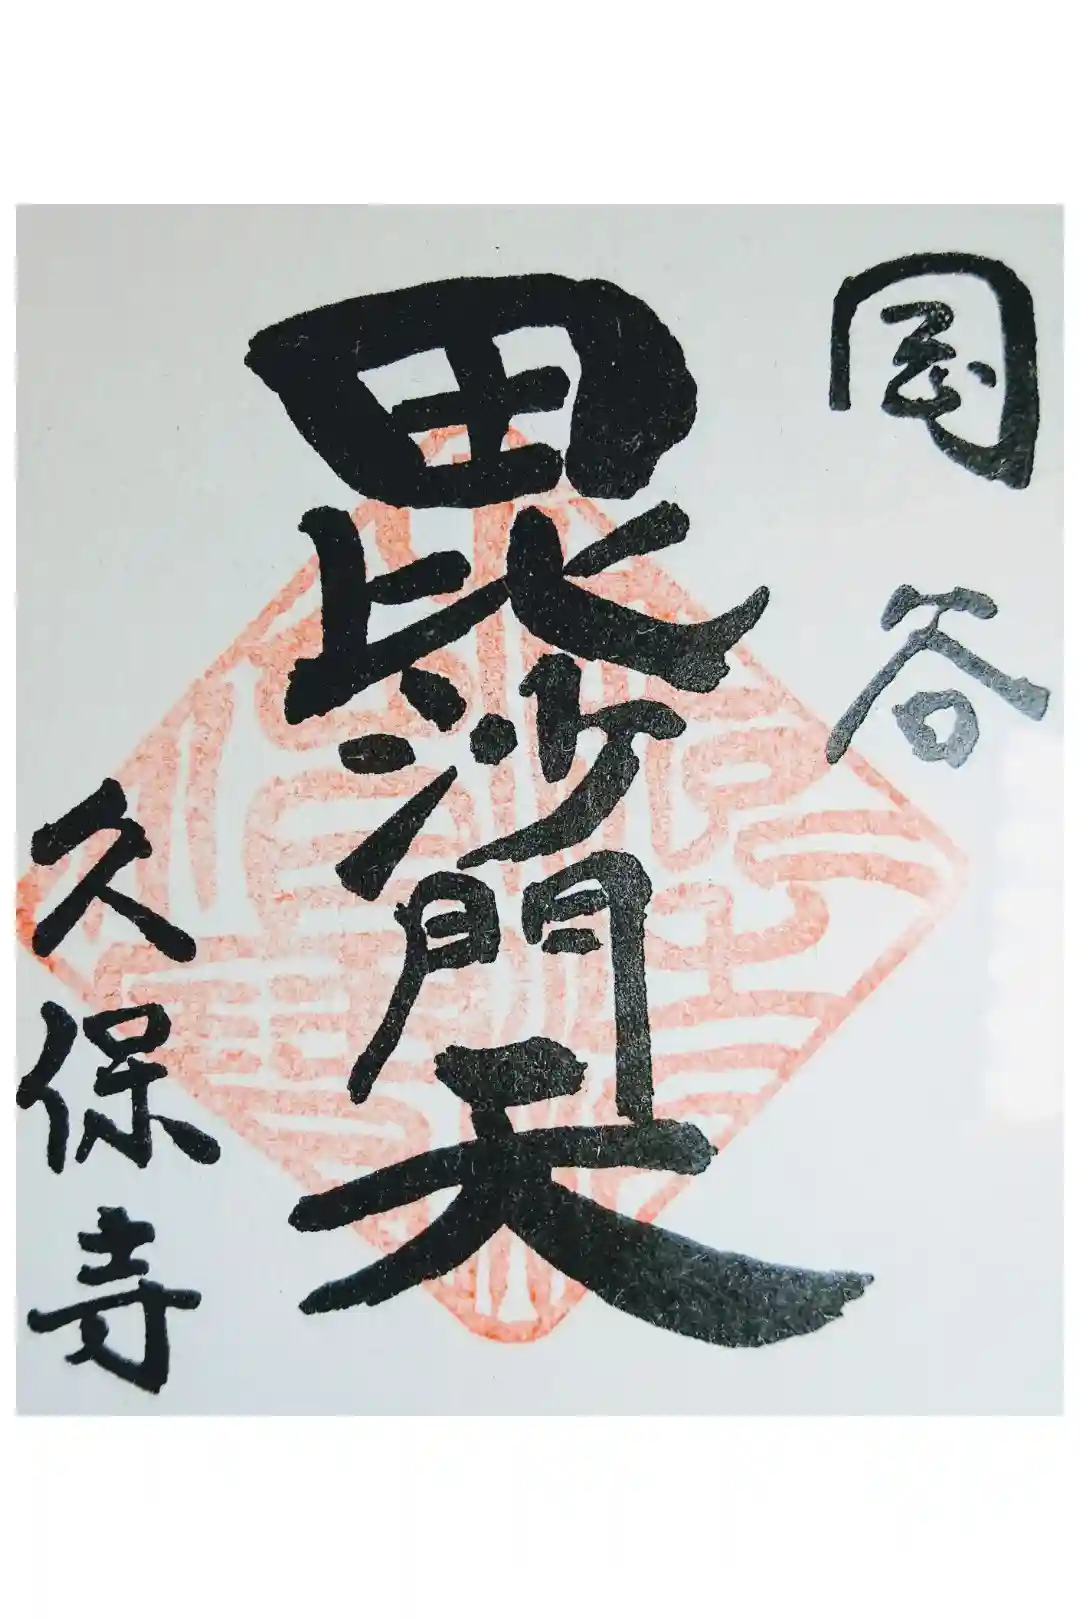 岡谷
毘沙門天
久保寺